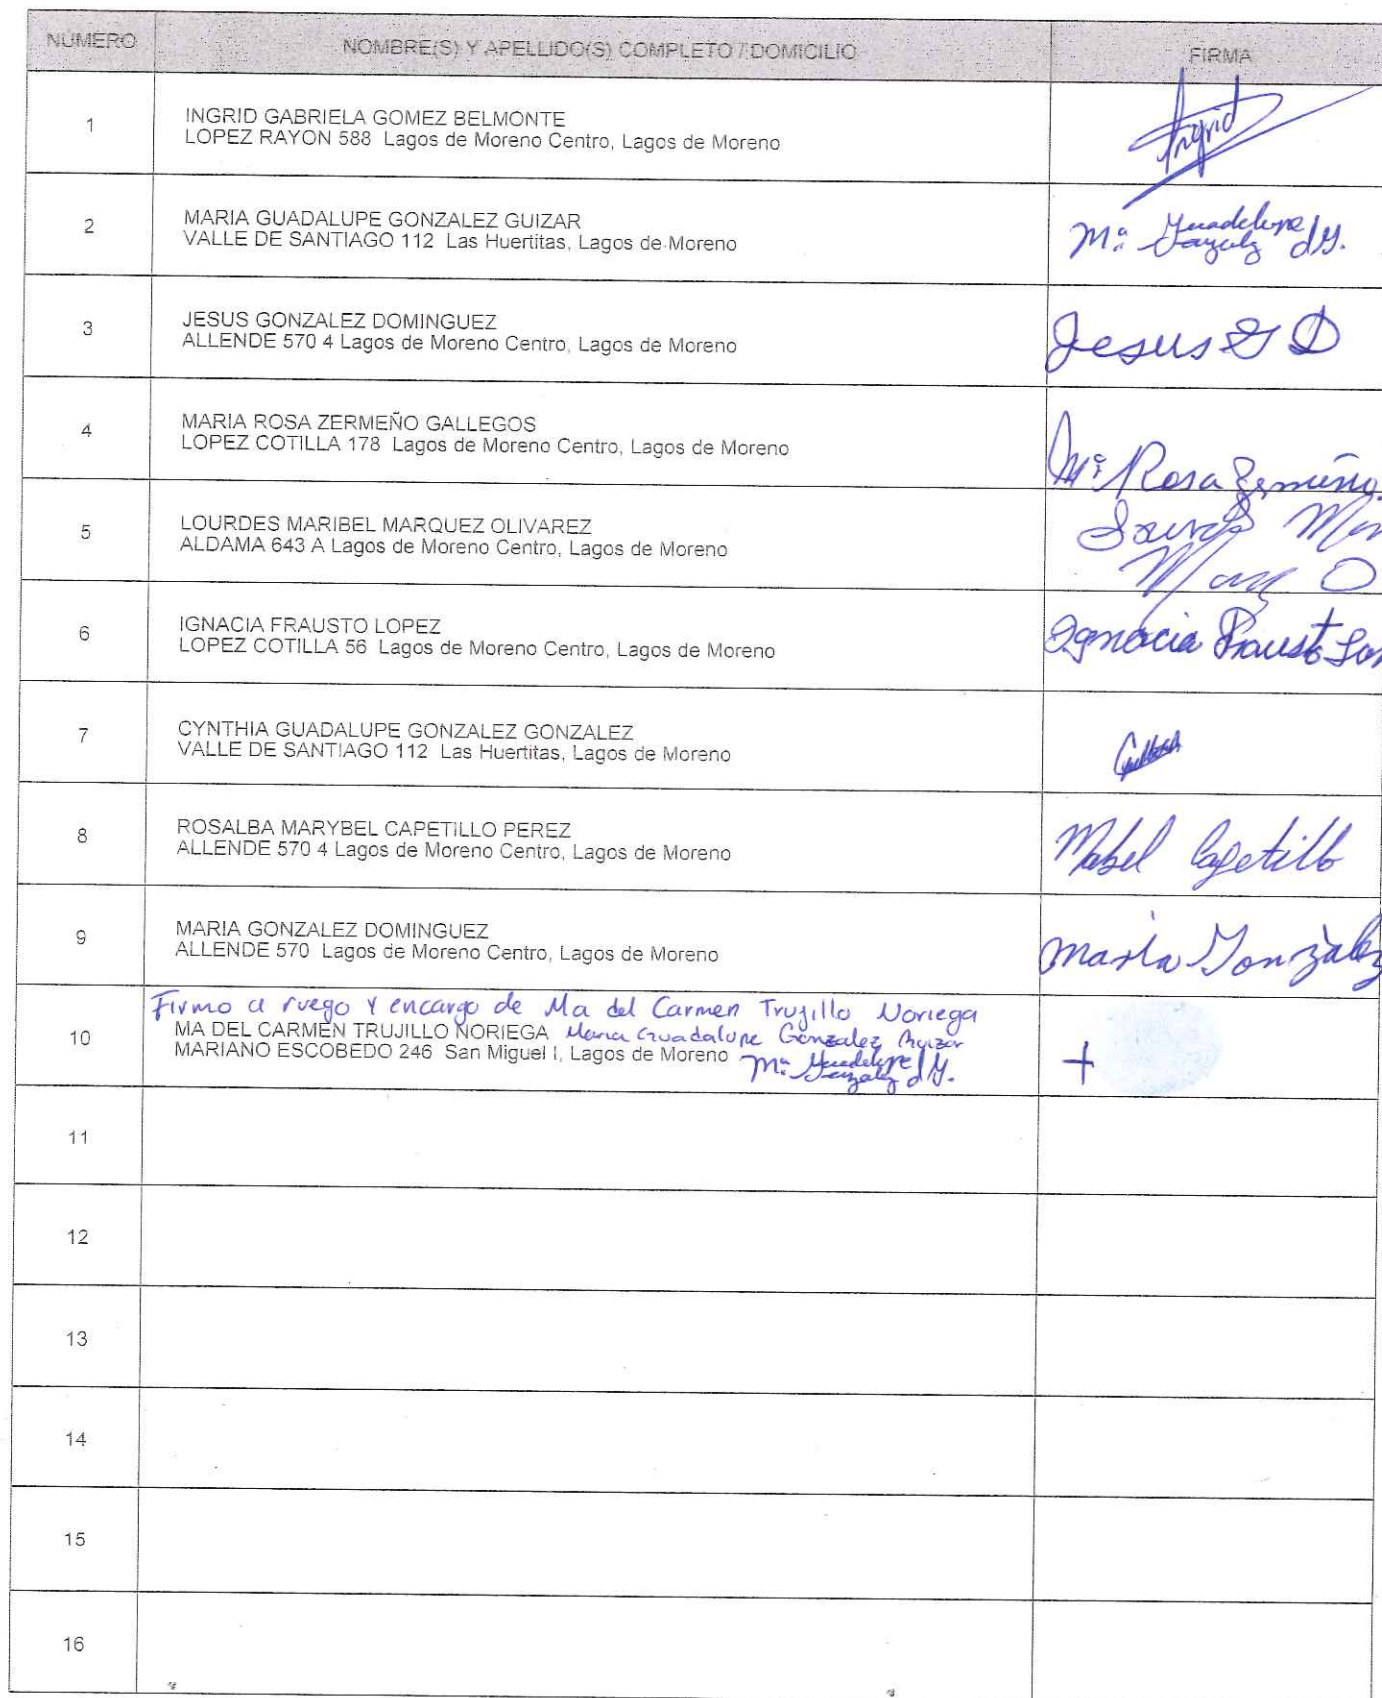 NUMERO NOMBRE(S) Y APELLIDO(S) COMPLETO / DOMICILIO FIRMA
1 INGRID GABRIELA GOMEZ BELMONTE Ingrid
LOPEZ RAYON 588 Lagos de Moreno Centro, Lagos de Moreno
2 MARIA GUADALUPE GONZALEZ GUIZAR Mª Guadelupe
VALLE DE SANTIAGO 112 Las Huertitas, Lagos de Moreno
3 JESUS GONZALEZ DOMINGUEZ Jesus G D
ALLENDE 570 4 Lagos de Moreno Centro, Lagos de Moreno
4 MARIA ROSA ZERMEÑO GALLEGOS
LOPEZ COTILLA 178 Lagos de Moreno Centro, Lagos de Moreno Mª Rosa
5 LOURDES MARIBEL MARQUEZ OLIVAREZ
ALDAMA 643 A Lagos de Moreno Centro, Lagos de Moreno
6 IGNACIA FRAUSTO LOPEZ Ignacia Frausto
LOPEZ COTILLA 56 Lagos de Moreno Centro, Lagos de Moreno
7 CYNTHIA GUADALUPE GONZALEZ GONZALEZ
VALLE DE SANTIAGO 112 Las Huertitas, Lagos de Moreno
8 ROSALBA MARYBEL CAPETILLO PEREZ Mabel Capetillo
ALLENDE 570 4 Lagos de Moreno Centro, Lagos de Moreno
9 MARIA GONZALEZ DOMINGUEZ Maria Gonzàlez
ALLENDE 570 Lagos de Moreno Centro, Lagos de Moreno
Firmo a ruego y encargo de Ma del Carmen Trujillo Noriega
10 MA DEL CARMEN TRUJILLO NORIEGA Maria Guadalupe Gonzalez
MARIANO ESCOBEDO 246 San Miguel I, Lagos de Moreno Mª Guadelupe +
11
12
13
14
15
16